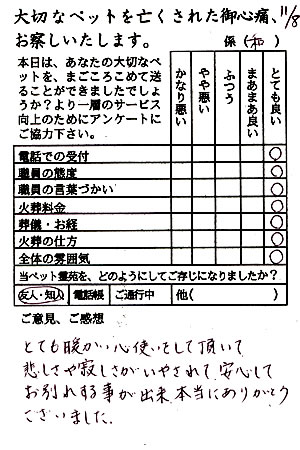 大切なペットを亡くされた御心痛、11/8
お察しいたします。 係(和)
本日は、あなたの大切なペットを、まごころこめて送ることができましたでしょうか?より一層のサービス向上のためにアンケートにご協力下さい。
かなり悪い
やや悪い
ふつう
まあまあ良い
とても良い
電話での受付 ○
職員の態度 ○
職員の言葉づかい ○
火葬料金 ○
葬儀・お経 ○
火葬の仕方 ○
全体の雰囲気 ○
当ペット霊苑を、どのようにしてご存じになりましたか?
友人・知人 電話帳 ご通行中 他( )
ご意見、ご感想
とても暖かい心使いをして頂いて
悲しさや寂しさがいやされて安心して
お別れする事が出来、本当にありがとう
ございました。